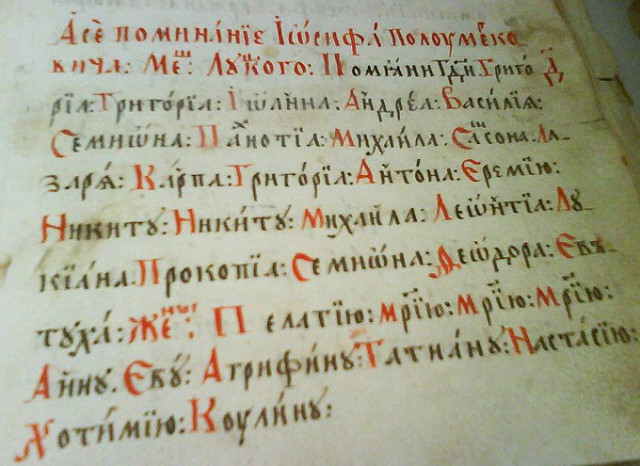 А сѐ поминанїе Іѡ́сифа полоумеко
вича: Ме́ш: Лу́кого: Помѧни Гдⷭи Григо
рїа: Григо́рїа: Іѡанна: А́ндрѐа: Васи́лїа:
Семиѡ́на: Паⷯнотїа: Михаи́ла: Саⷨсона: Ла
заря́: Ка́рпа: Григо́рїа: Анто́на: Еремїю:
Никиту: Ники́ту: Михаила: Леѡ́нтїа: Лу́
кїа́на. Прокопїа: Семиѡна: Ѳеѡ́дора: Евъ
туха́: Же́ны: Пелагїю: мр҃їю: мр҃їю: мр҃їю:
А́нну. Еву́: Агрифи́ну: Татиа́ну: Настасїю:
Хоти́мїю: Коули́ну: